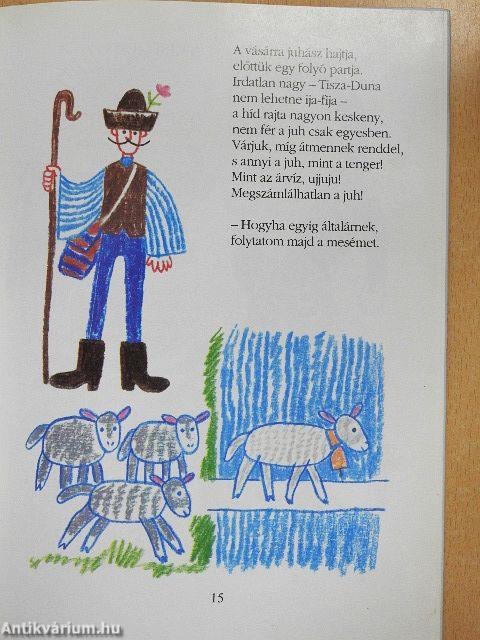 A vásárra juhász hajtja,
előttük egy folyó partja.
Irdatlan nagy – Tisza-Duna
nem lehetne ija-fija –
a híd rajta nagyon keskeny,
nem fér a juh csak egyesben.
Várjuk, míg átmennek renddel,
s annyi a juh, mint a tenger!
Mint az árvíz, ujjuju!
Megszámlálhatlan a juh!
– Hogyha egyig általérnek,
folytatom majd a mesémet.
15
Antikvárium.hu